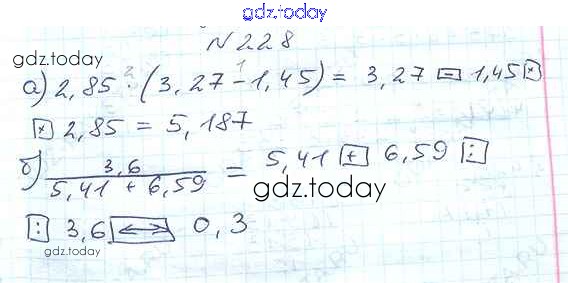 gdz.today
N 228
gdz.today
а) 2,85 · (3,27 - 1,45) = 3,27 [-] 1,45 [×]
[×] 2,85 = 5,187
б) 3,6 / 5,41 + 6,59 = 5,41 [+] 6,59 [:]
gdz.today
[:] 3,6 [<->] 0,3
gdz.today